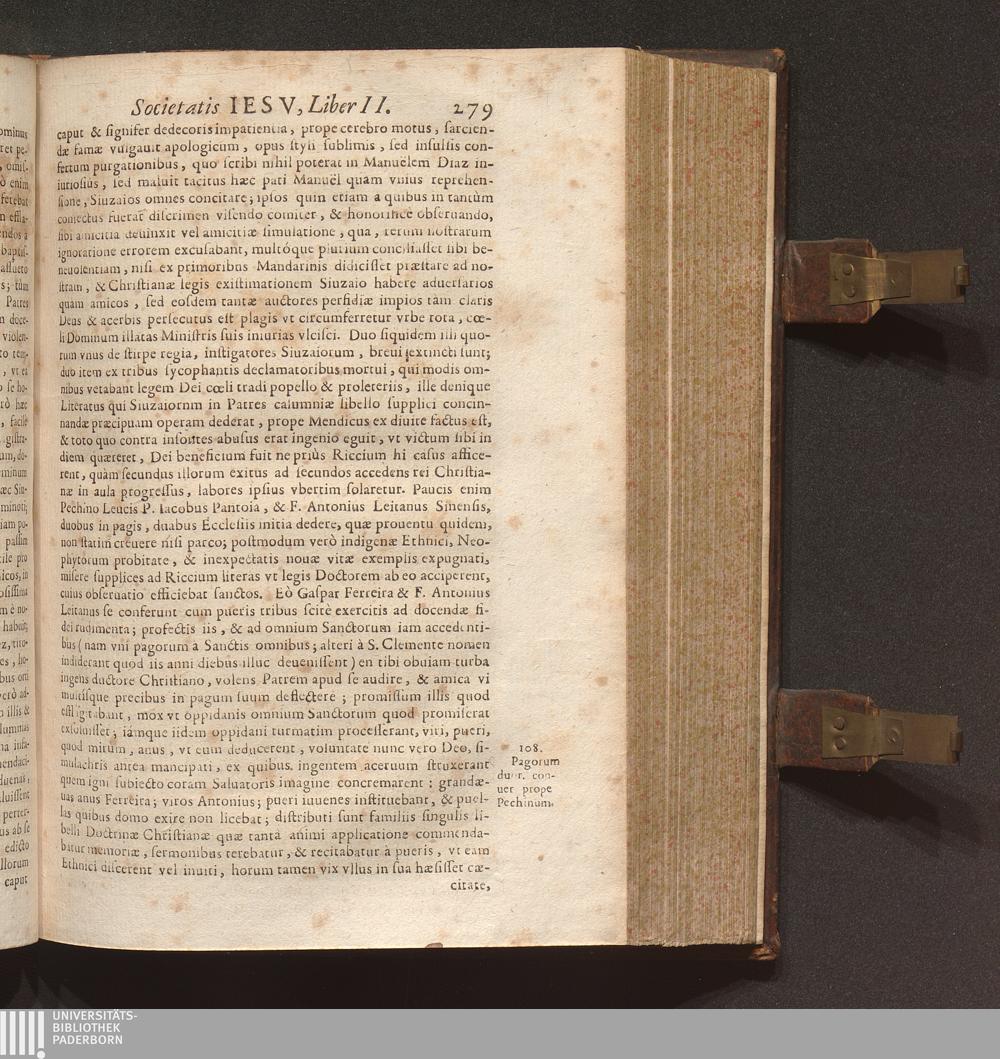 Societatis IESV, Liber II. 279
caput & signifer dedecoris impatientia, prope cerebro motus, sarcien-
dæ famæ vulgauit apologicum, opus styli sublimis, sed insulsis con-
fertum purgationibus, quo scribi nihil poterat in Manuëlem Diaz in-
iuriosius, sed maluit tacitus hæc pati Manuël quam vnius reprehen-
sione, Siuzaios omnes concitare; ipsos quin etiam a quibus in tantùm
coniectus fuerat discrimen visendo comiter, & honorifice obseruando,
sibi amicitia deuinxit vel amicitiæ simulatione, qua, rerum nostrarum
ignoratione errorem excusabant, multóque plurium conciliasset sibi be-
neuolentiam, nisi ex primoribus Mandarinis didicisset præstare ad no-
stram, & Christianæ legis existimationem Siuzaio habere aduersarios
quam amicos, sed eosdem tantæ auctores perfidiæ impios tàm claris
Deus & acerbis persecutus est plagis vt circumferretur vrbe tota, cœ-
li Dominum illatas Ministris suis iniurias vlcisci. Duo siquidem illi quo-
rum vnus de stirpe regia, instigatores Siuzaiorum, breui extincti sunt;
duo item ex tribus sycophantis declamatoribus mortui, qui modis om-
nibus vetabant legem Dei cœli tradi popello & proleteriis, ille denique
Literatus qui Siuzaiornm in Patres calumniæ libello supplici concin-
nandæ præcipuam operam dederat, prope Mendicus ex diuite factus est,
& toto quo contra insontes abusus erat ingenio eguit, vt victum sibi in
diem quæreret, Dei beneficium fuit ne priùs Riccium hi casus affice-
rent, quàm secundus illorum exitus ad secundos accedens rei Christia-
næ in aula progressus, labores ipsius vbertim solaretur. Paucis enim
Pechino Leucis P. Iacobus Pantoia, & F. Antonius Leitanus Sinensis,
duobus in pagis, duabus Ecclesiis initia dedere, quæ prouentu quidem,
non statim creuere nisi parco; postmodum verò indigenæ Ethnici, Neo-
phytorum probitate, & inexpectatis nouæ vitæ exemplis expugnati,
misere supplices ad Riccium literas vt legis Doctorem ab eo acciperent,
cuius obseruatio efficiebat sanctos. Eò Gaspar Ferreira & F. Antonius
Leitanus se conferunt cum pueris tribus scitè exercitis ad docendæ fi-
dei rudimenta; profectis iis, & ad omnium Sanctorum iam accedenti-
bus (nam vni pagorum à Sanctis omnibus; alteri à S. Clemente nomen
indiderant quod iis anni diebus illuc deuenissent) en tibi obuiam turba
ingens ductore Christiano, volens Patrem apud se audire, & amica vi
multisque precibus in pagum suum deflectere; promissum illis quod
efflagitabant, mox vt oppidanis omnium Sanctorum quod promiserat
exsoluisset; iamque iidem oppidani turmatim processerant, viri, pueri,
quod mirum, anus, vt eum deducerent, voluntate nunc vero Deo, si-
mulachris antea mancipati, ex quibus ingentem aceruum struxerant
quem igni subiecto coram Saluatoris imagine concremarent: grandæ-
uas anus Ferreira; viros Antonius; pueri iuuenes instituebant, & puel-
las quibus domo exire non licebat; distributi sunt familiis singulis li-
belli Doctrinæ Christianæ quæ tanta animi applicatione commenda-
batur memoriæ, sermonibus terebatur, & recitabatur à pueris, vt eam
Ethnici discerent vel inuiti, horum tamen vix vllus in sua hæsisset cæ-
citate,
108.
Pagorum
duor. con-
uer prope
Pechinum.
UNIVERSITÄTS-
BIBLIOTHEK
PADERBORN